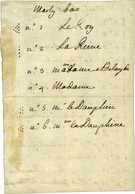 Marly bas
n.° 1 Le Roy
n.° 2 La Reine
n.° 3. madame
n.° 4 Madame
n.° 5. M. le Dauphin
n.° 6. M.me la Dauphine